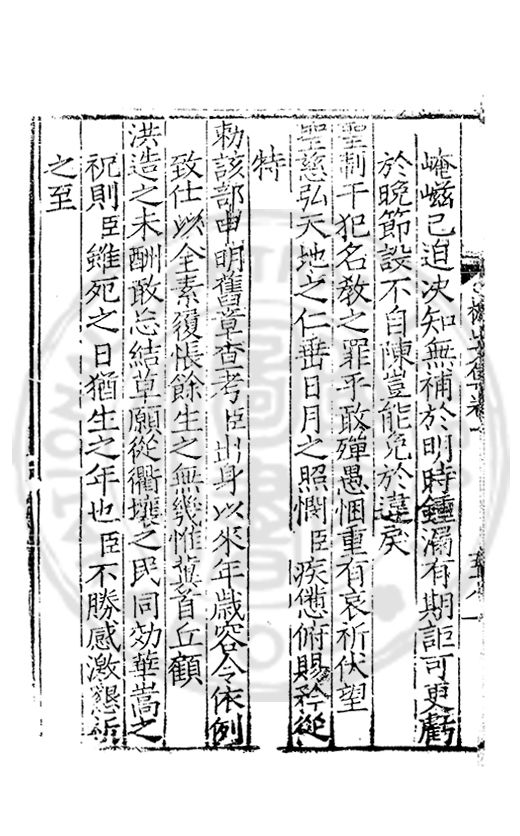 崦嵫已迫决知無補於明時鍾漏有期詎可更虧
於晩節設不自陳豈能免於違戾
聖制干犯名教之罪乎敢殫愚悃重有哀祈伏望
聖慈弘天地之仁垂日月之照憫臣疾憊俯賜矜從
特
勑該部申明舊章查考臣出身以來年歲容令依例
致仕以全素復悵餘生之無幾惟冀首丘顧
洪造之未酬敢忘結草願從衢壤之民同効華嵩之
祝則臣雖死之日猶生之年也臣不勝感激懇祈
之至